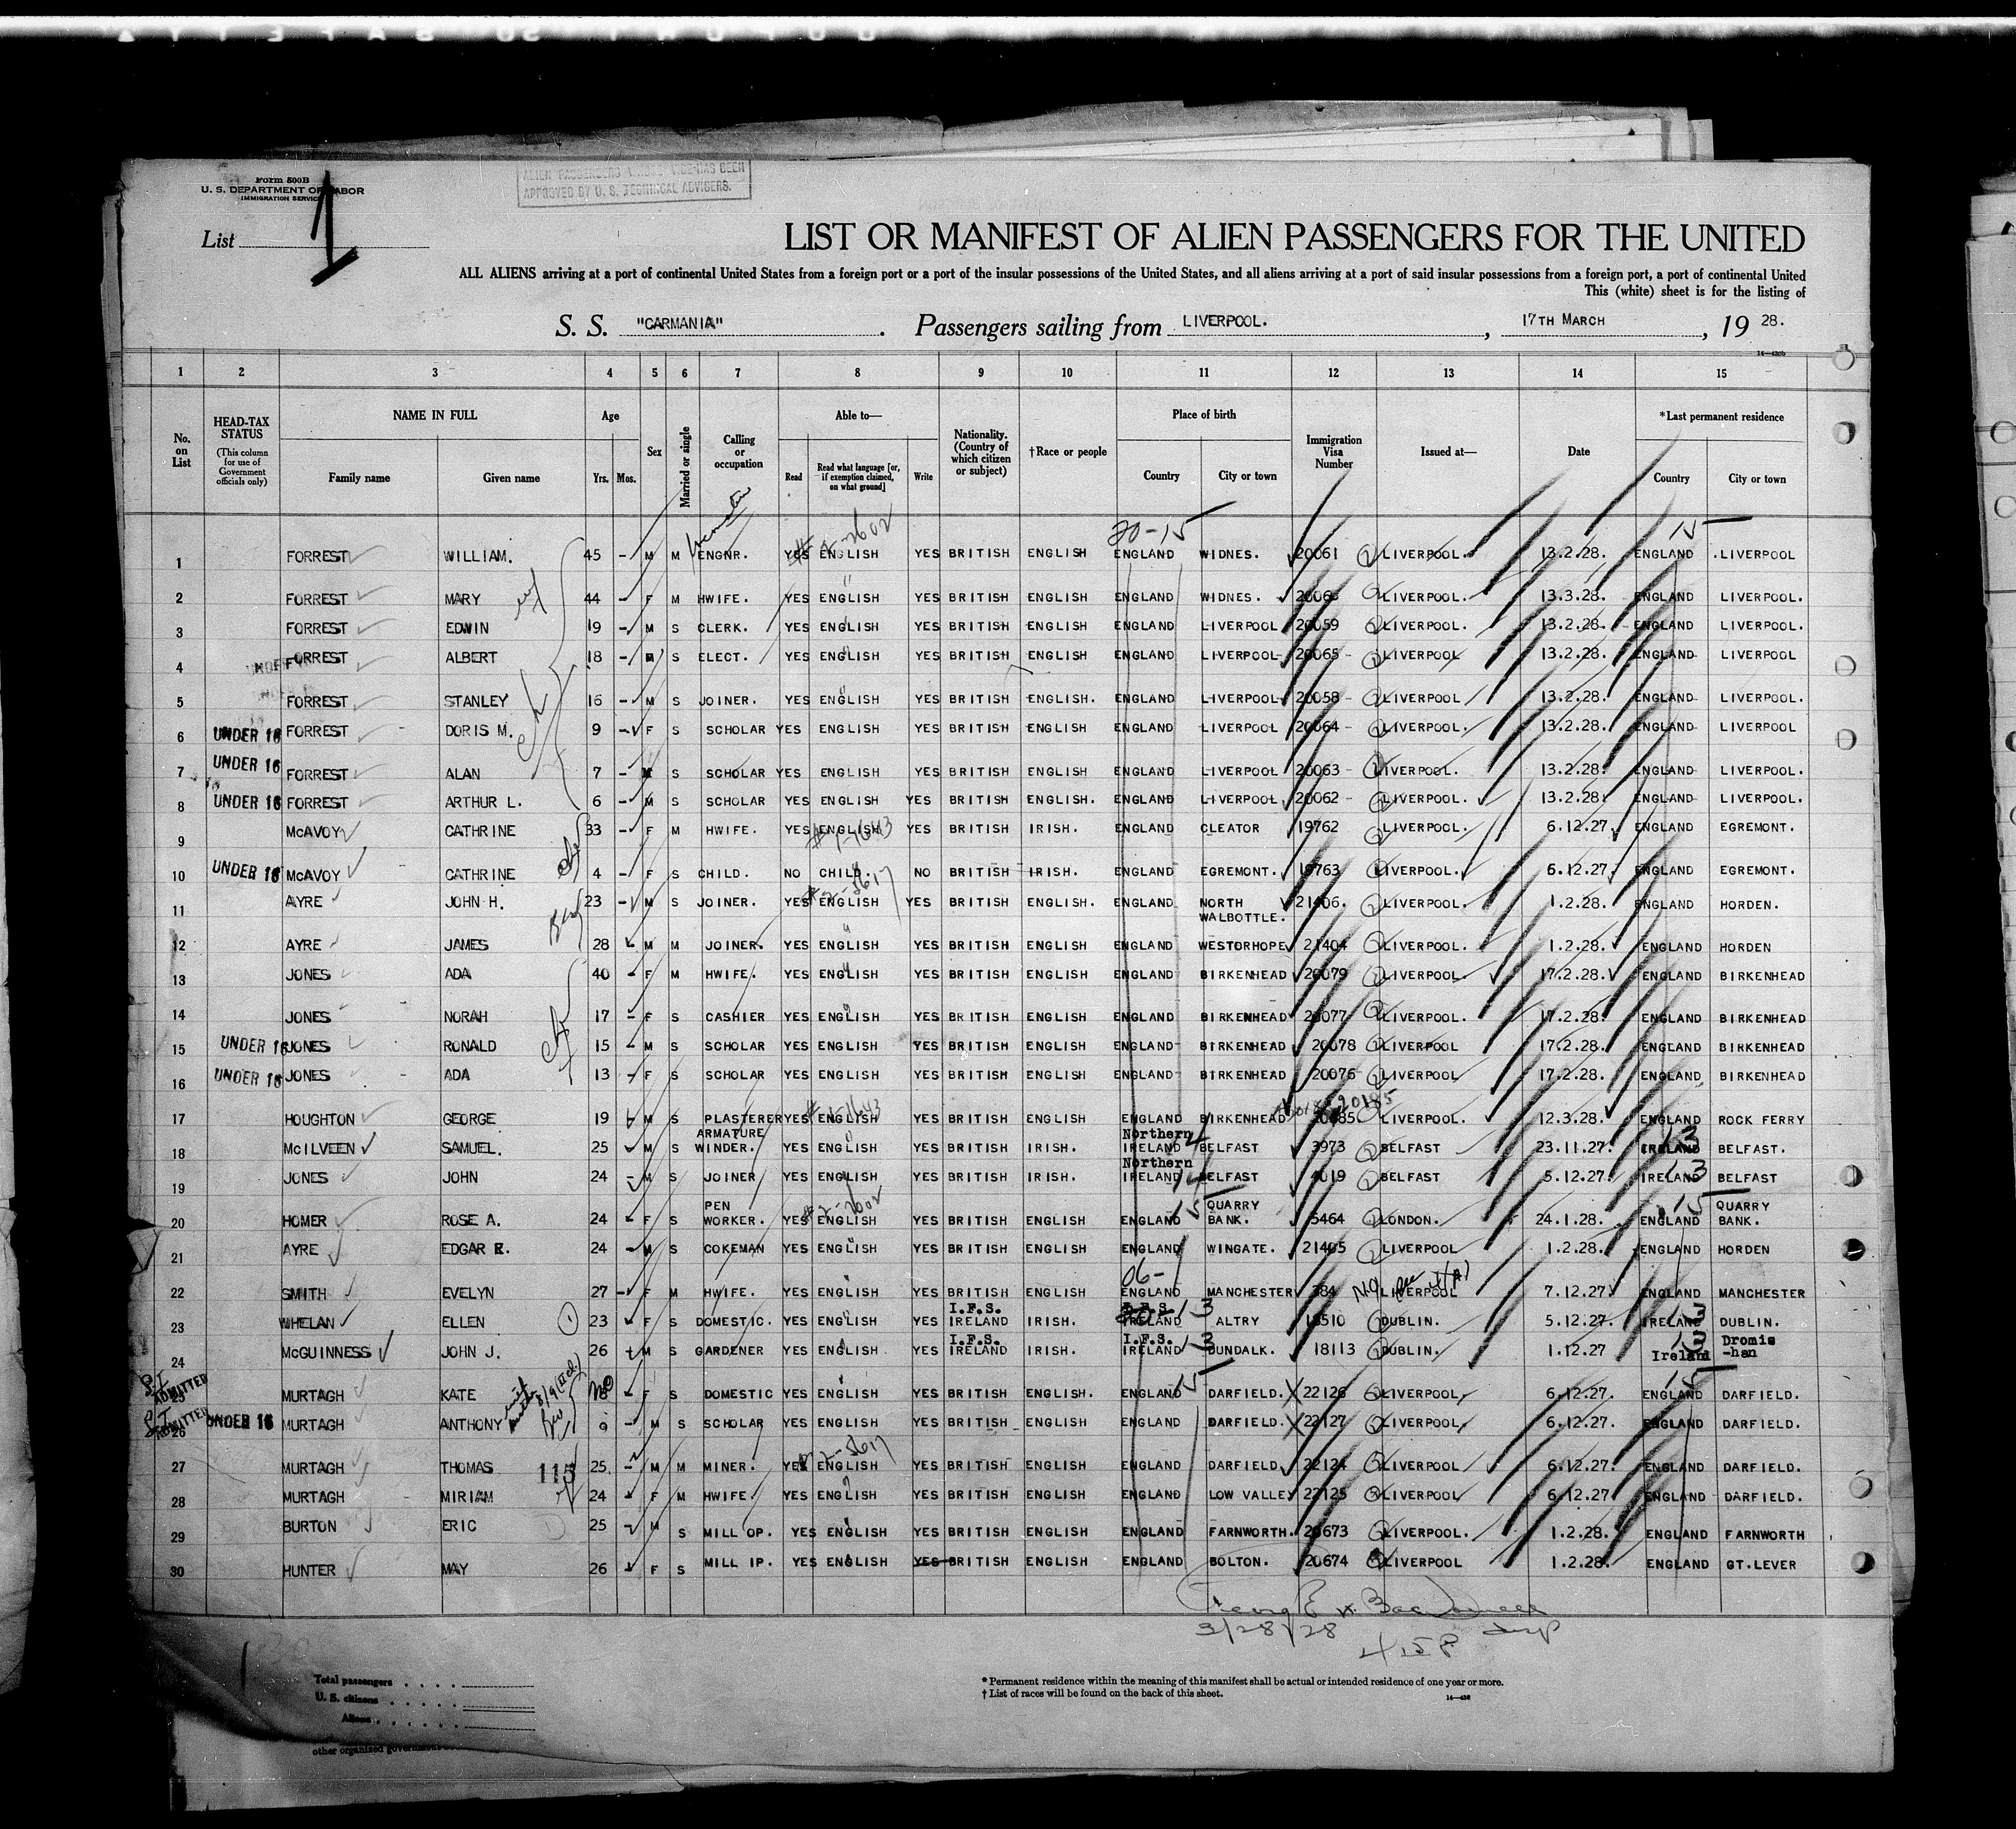 Form 500B
U. S. DEPARTMENT OF LABOR
IMMIGRATION SERVICE
ALIEN PASSENGERS HAS BEEN
APPROVED BY U. S. TECHNICAL ADVISERS.
List 1
LIST OR MANIFEST OF ALIEN PASSENGERS FOR THE UNITED
ALL ALIENS arriving at a port of continental United States from a foreign port or a port of the insular possessions of the United States, and all aliens arriving at a port of said insular possessions from a foreign port, a port of continental United
This (white) sheet is for the listing of
S. S. "CARMANIA" . Passengers sailing from LIVERPOOL. , 17TH MARCH , 19 28.
14—430b
1 2 3 4 5 6 7 8 9 10 11 12 13 14 15
No. on List
HEAD-TAX STATUS (This column for use of Government officials only)
NAME IN FULL Family name Given name
Age Yrs. Mos.
Sex
Married or single
Calling or occupation
Able to— Read Read what language [or, if exemption claimed, on what ground] Write
Nationality. (Country of which citizen or subject)
†Race or people
Place of birth Country City or town
Immigration Visa Number
Issued at—
Date
*Last permanent residence Country City or town
20-15 15
1 FORREST WILLIAM. 45 - M M ENGNR. YES ENGLISH YES BRITISH ENGLISH ENGLAND WIDNES. 20061 LIVERPOOL. 13.2.28. ENGLAND LIVERPOOL
2 FORREST MARY 44 - F M HWIFE. YES ENGLISH YES BRITISH ENGLISH ENGLAND WIDNES. LIVERPOOL. 13.3.28. ENGLAND LIVERPOOL.
3 FORREST EDWIN 19 - M S CLERK. YES ENGLISH YES BRITISH ENGLISH ENGLAND LIVERPOOL 20059 LIVERPOOL. 13.2.28. ENGLAND LIVERPOOL.
4 FORREST ALBERT 18 - M S ELECT. YES ENGLISH YES BRITISH ENGLISH ENGLAND LIVERPOOL 20065 LIVERPOOL 13.2.28. ENGLAND LIVERPOOL
5 FORREST STANLEY 16 - M S JOINER. YES ENGLISH YES BRITISH ENGLISH. ENGLAND LIVERPOOL 20058 LIVERPOOL 13.2.28. ENGLAND LIVERPOOL
6 UNDER 16 FORREST DORIS M. 9 - F S SCHOLAR YES ENGLISH YES BRITISH ENGLISH ENGLAND LIVERPOOL 20064 LIVERPOOL 13.2.28. ENGLAND LIVERPOOL
7 UNDER 16 FORREST ALAN 7 - M S SCHOLAR YES ENGLISH YES BRITISH ENGLISH ENGLAND LIVERPOOL 20063 LIVERPOOL. 13.2.28. ENGLAND LIVERPOOL.
8 UNDER 16 FORREST ARTHUR L. 6 - M S SCHOLAR YES ENGLISH YES BRITISH ENGLISH. ENGLAND LIVERPOOL. 20062 LIVERPOOL. 13.2.28. ENGLAND LIVERPOOL.
9 McAVOY CATHRINE 33 - F M HWIFE. YES ENGLISH YES BRITISH IRISH. ENGLAND CLEATOR 19762 LIVERPOOL. 6.12.27. ENGLAND EGREMONT.
10 UNDER 16 McAVOY CATHRINE 4 - F S CHILD. NO CHILD. NO BRITISH IRISH. ENGLAND EGREMONT. 19763 LIVERPOOL. 6.12.27. ENGLAND EGREMONT.
11 AYRE JOHN H. 23 - M S JOINER. YES ENGLISH YES BRITISH ENGLISH. ENGLAND NORTH WALBOTTLE. 21406. LIVERPOOL. 1.2.28. ENGLAND HORDEN.
12 AYRE JAMES 28 - M M JOINER. YES ENGLISH YES BRITISH ENGLISH ENGLAND WESTORHOPE 21404 LIVERPOOL. 1.2.28. ENGLAND HORDEN
13 JONES ADA 40 - F M HWIFE. YES ENGLISH YES BRITISH ENGLISH ENGLAND BIRKENHEAD 20079 LIVERPOOL. 17.2.28. ENGLAND BIRKENHEAD
14 JONES NORAH 17 - F S CASHIER YES ENGLISH YES BRITISH ENGLISH ENGLAND BIRKENHEAD 20077 LIVERPOOL. 17.2.28. ENGLAND BIRKENHEAD
15 UNDER 16 JONES RONALD 15 - M S SCHOLAR YES ENGLISH YES BRITISH ENGLISH ENGLAND BIRKENHEAD 20078 LIVERPOOL 17.2.28. ENGLAND BIRKENHEAD
16 UNDER 16 JONES ADA 13 - F S SCHOLAR YES ENGLISH YES BRITISH ENGLISH ENGLAND BIRKENHEAD 20076 LIVERPOOL 17.2.28. ENGLAND BIRKENHEAD
20185
17 HOUGHTON GEORGE 19 - M S PLASTERER YES ENGLISH YES BRITISH ENGLISH ENGLAND BIRKENHEAD LIVERPOOL. 12.3.28. ENGLAND ROCK FERRY
18 McILVEEN SAMUEL. 25 - M S ARMATURE WINDER. YES ENGLISH YES BRITISH IRISH. Northern IRELAND BELFAST 3973 BELFAST 23.11.27. IRELAND 13 BELFAST.
19 JONES JOHN 24 - M S JOINER YES ENGLISH YES BRITISH IRISH. Northern IRELAND BELFAST 4019 BELFAST 5.12.27. IRELAND 13 BELFAST
20 HOMER ROSE A. 24 - F S PEN WORKER. YES ENGLISH YES BRITISH ENGLISH ENGLAND 15 QUARRY BANK. 5464 LONDON. 24.1.28. ENGLAND 15 QUARRY BANK.
21 AYRE EDGAR R. 24 - M S COKEMAN YES ENGLISH YES BRITISH ENGLISH ENGLAND WINGATE. 21405 LIVERPOOL 1.2.28. ENGLAND HORDEN
06-
22 SMITH EVELYN 27 - F M HWIFE. YES ENGLISH YES BRITISH ENGLISH ENGLAND MANCHESTER 384 NQ LIVERPOOL 7.12.27. ENGLAND MANCHESTER
23 WHELAN ELLEN 23 - F S DOMESTIC. YES ENGLISH YES I.F.S. IRELAND IRISH. I.F.S. IRELAND 13 ALTRY 18510 DUBLIN. 5.12.27. IRELAND 13 DUBLIN.
24 McGUINNESS JOHN J. 26 - M S GARDENER YES ENGLISH YES I.F.S. IRELAND IRISH. I.F.S. IRELAND 13 DUNDALK. 18113 DUBLIN. 1.12.27 Ireland 13 Dromis -han
25 SI ADMITTED MURTAGH KATE 18 - F S DOMESTIC YES ENGLISH YES BRITISH ENGLISH. ENGLAND 15 DARFIELD. 22126 LIVERPOOL. 6.12.27. ENGLAND 15 DARFIELD.
26 SI ADMITTED UNDER 16 MURTAGH ANTHONY 9 - M S SCHOLAR YES ENGLISH YES BRITISH ENGLISH ENGLAND DARFIELD. 22127 LIVERPOOL. 6.12.27. ENGLAND DARFIELD.
27 MURTAGH THOMAS 115 25 - M M MINER. YES ENGLISH YES BRITISH ENGLISH ENGLAND DARFIELD 22124 LIVERPOOL 6.12.27. ENGLAND DARFIELD.
28 MURTAGH MIRIAM 24 - F M HWIFE YES ENGLISH YES BRITISH ENGLISH ENGLAND LOW VALLEY 22125 LIVERPOOL 6.12.27 ENGLAND DARFIELD.
29 BURTON ERIC 25 - M S MILL OP. YES ENGLISH YES BRITISH ENGLISH ENGLAND FARNWORTH. 20673 LIVERPOOL. 1.2.28. ENGLAND FARNWORTH
30 HUNTER MAY 26 - F S MILL IP. YES ENGLISH YES BRITISH ENGLISH ENGLAND BOLTON. 20674 LIVERPOOL 1.2.28. ENGLAND GT. LEVER
3/28/28 Insp
415P
Total passengers
U. S. citizens
Aliens
other organized government
* Permanent residence within the meaning of this manifest shall be actual or intended residence of one year or more.
† List of races will be found on the back of this sheet.
14—430